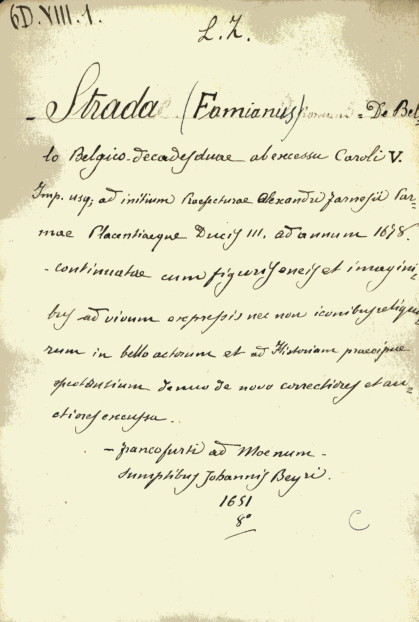 6D.VIII.1.
L.Z.
- Strada (Famianus) - De Bel-
lo Belgico-decades duae ab excessu Caroli V.
Imp. usq; ad initium Praefecturae Alexandri Farnesii Par-
mae Placentiaeque Ducis III. ad annum 1678.
- continuatae cum figuris eneis et imagini-
bus ad vivum expressis nec non iconibus reliquo-
rum in bello actorum et ad Historiam praecipue
spectantium denuo de novo correctiores et au-
ctiores excussa.
- Francofurti ad Moenum -
Sumptibus Johannis Beyri.
1651
8°